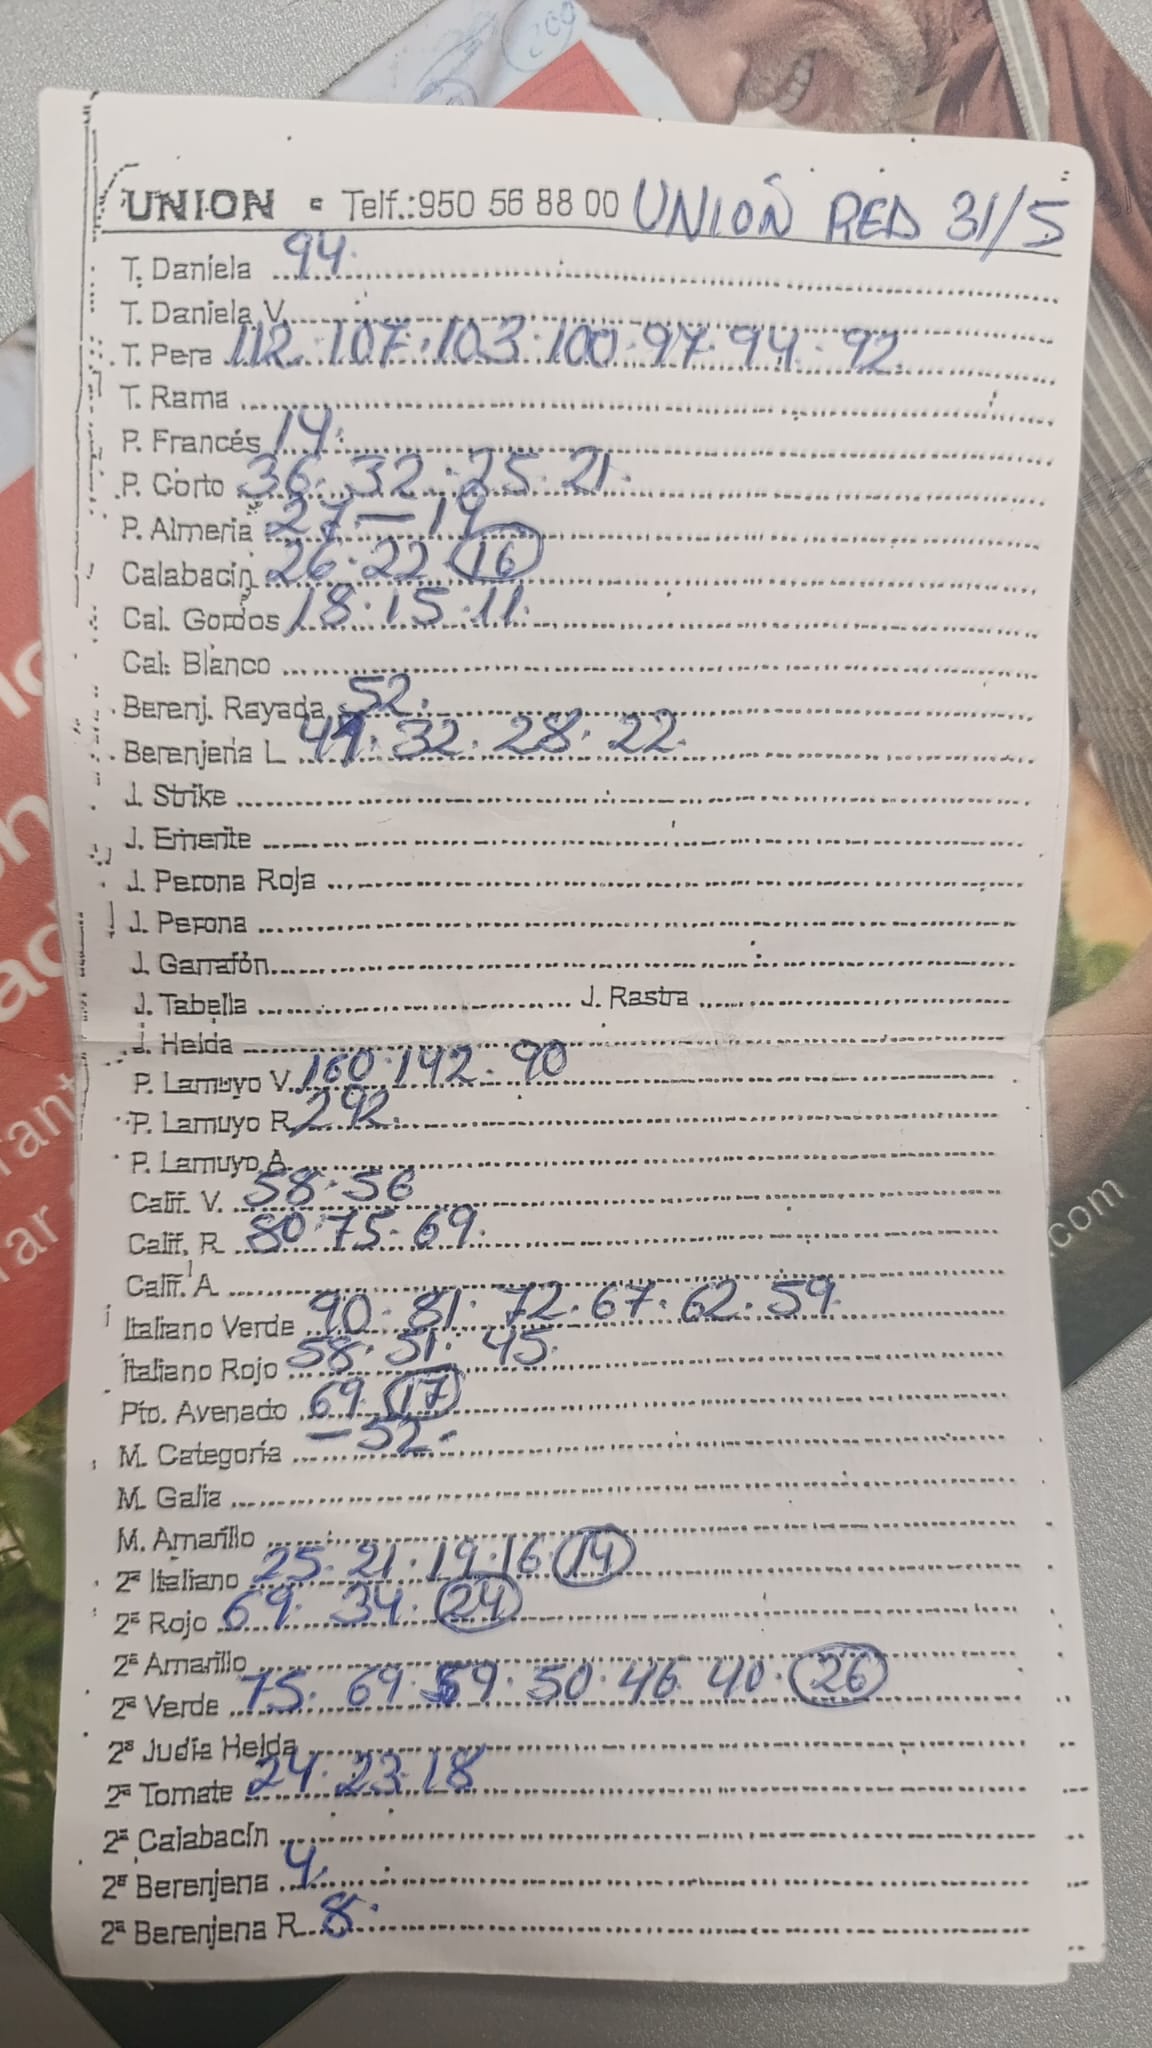 200
UNION - Telf.:950 56 88 00 UNION RED 31/5
T. Daniela 94.
T. Daniela V.
T. Pera 112. 107. 103. 100. 97. 94. 92.
T. Rama
P. Francés 14.
P. Corto 36. 32. 25. 21.
P. Almeria 27 — 19
Calabacin 26. 22 (16)
Cal. Gordos 18. 15. 11.
Cal. Blanco
Berenj. Rayada 52.
Berenjena L 32. 28. 22.
J. Strike
J. Emerite
J. Perona Roja
J. Perona
J. Garrafón
J. Tabella J. Rastra
J. Helda
P. Lamuyo V. 160. 142. 90
P. Lamuyo R 292.
P. Lamuyo A
Calif. V. 58. 56
Calif. R 80. 75. 69.
Calif. A
Italiano Verde 90. 81. 72. 67. 62. 59.
Italiano Rojo 58. 51. 45.
Pto. Avenado 69. (17)
M. Categoría — 52 -
M. Galia
M. Amarillo
2ª Italiano 25. 21. 19. 16. (14)
2ª Rojo 69. 34. (24)
2ª Amarillo
2ª Verde 75. 69. 59. 50. 46. 40. (26)
2ª Judía Helda
2ª Tomate 24. 23. 18
2ª Calabacín
2ª Berenjena 4.
2ª Berenjena R. 8.
.com